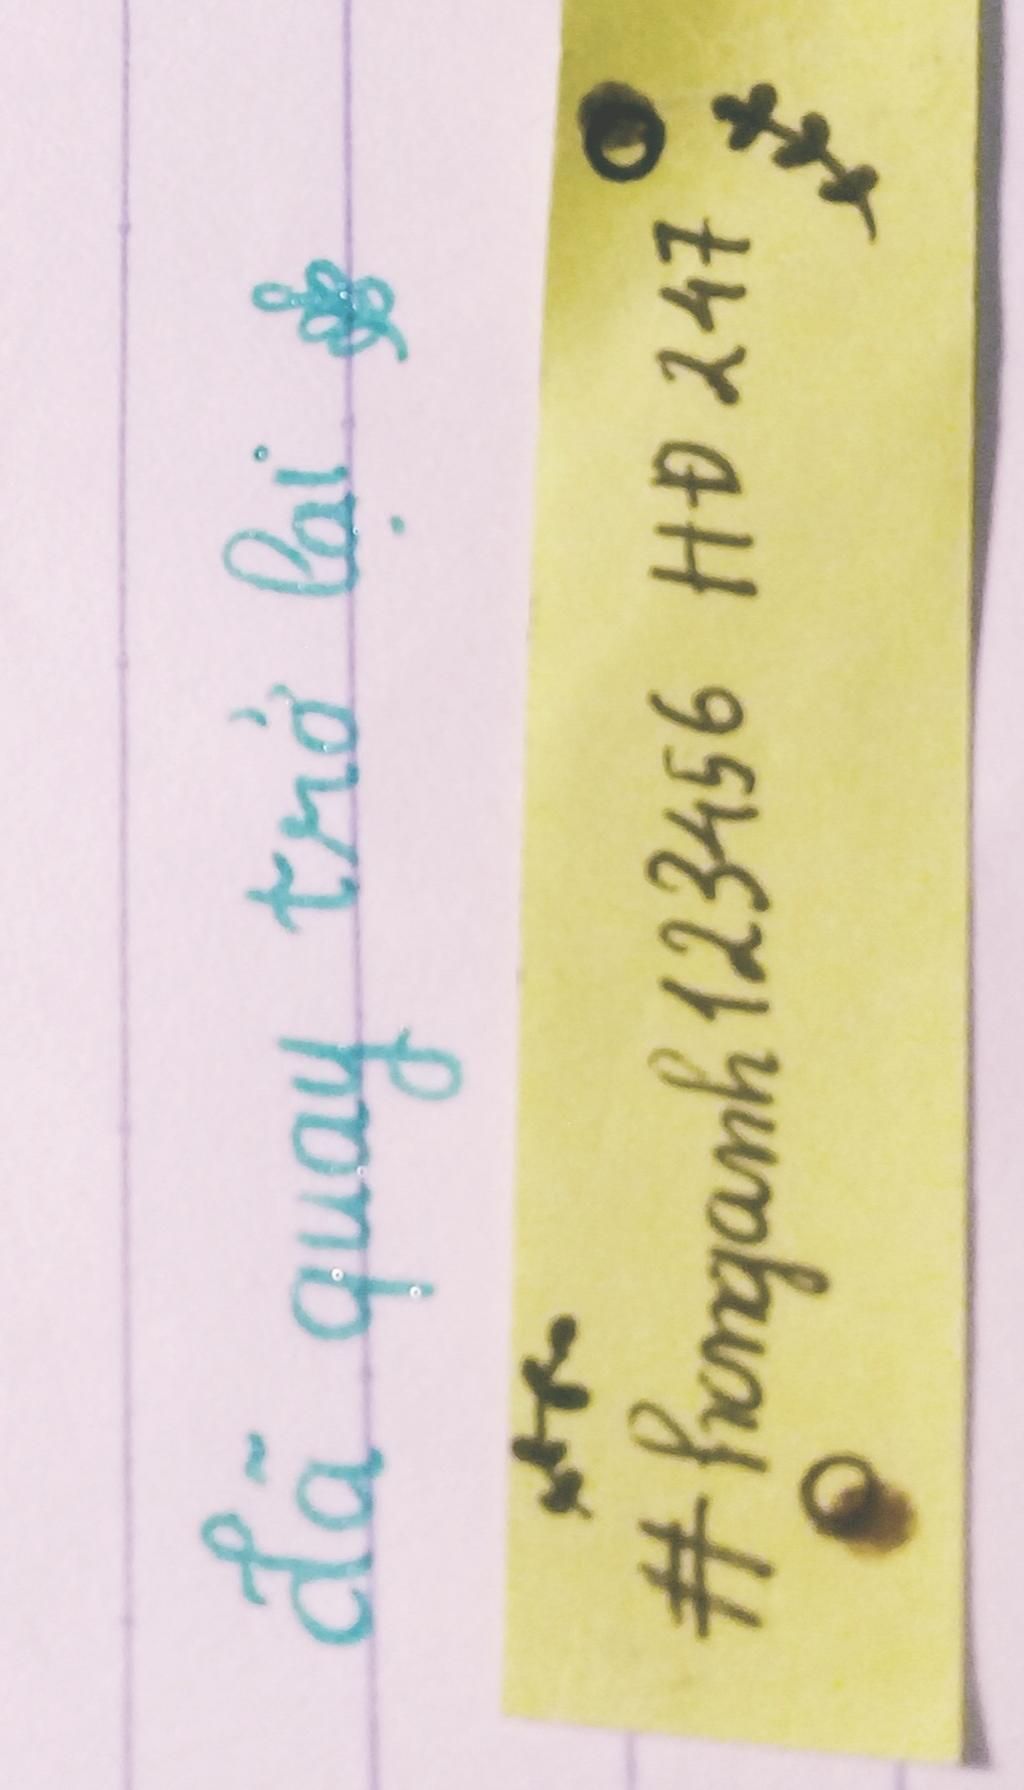 đã quay trở lại
#honganh123456 HĐ 247